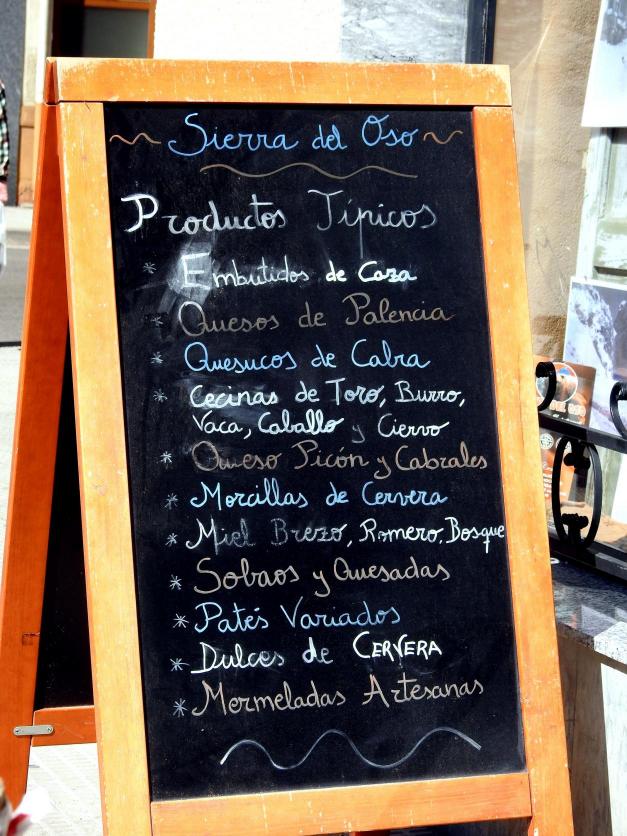 Sierra del Oso
Productos Típicos
* Embutidos de Caza
* Quesos de Palencia
* Quesucos de Cabra
* Cecinas de Toro, Burro,
Vaca, Caballo y Ciervo
* Queso Picón y Cabrales
* Morcillas de Cervera
* Miel Brezo, Romero, Bosque
* Sobaos y Quesadas
* Patés Variados
* Dulces de CERVERA
* Mermeladas Artesanas